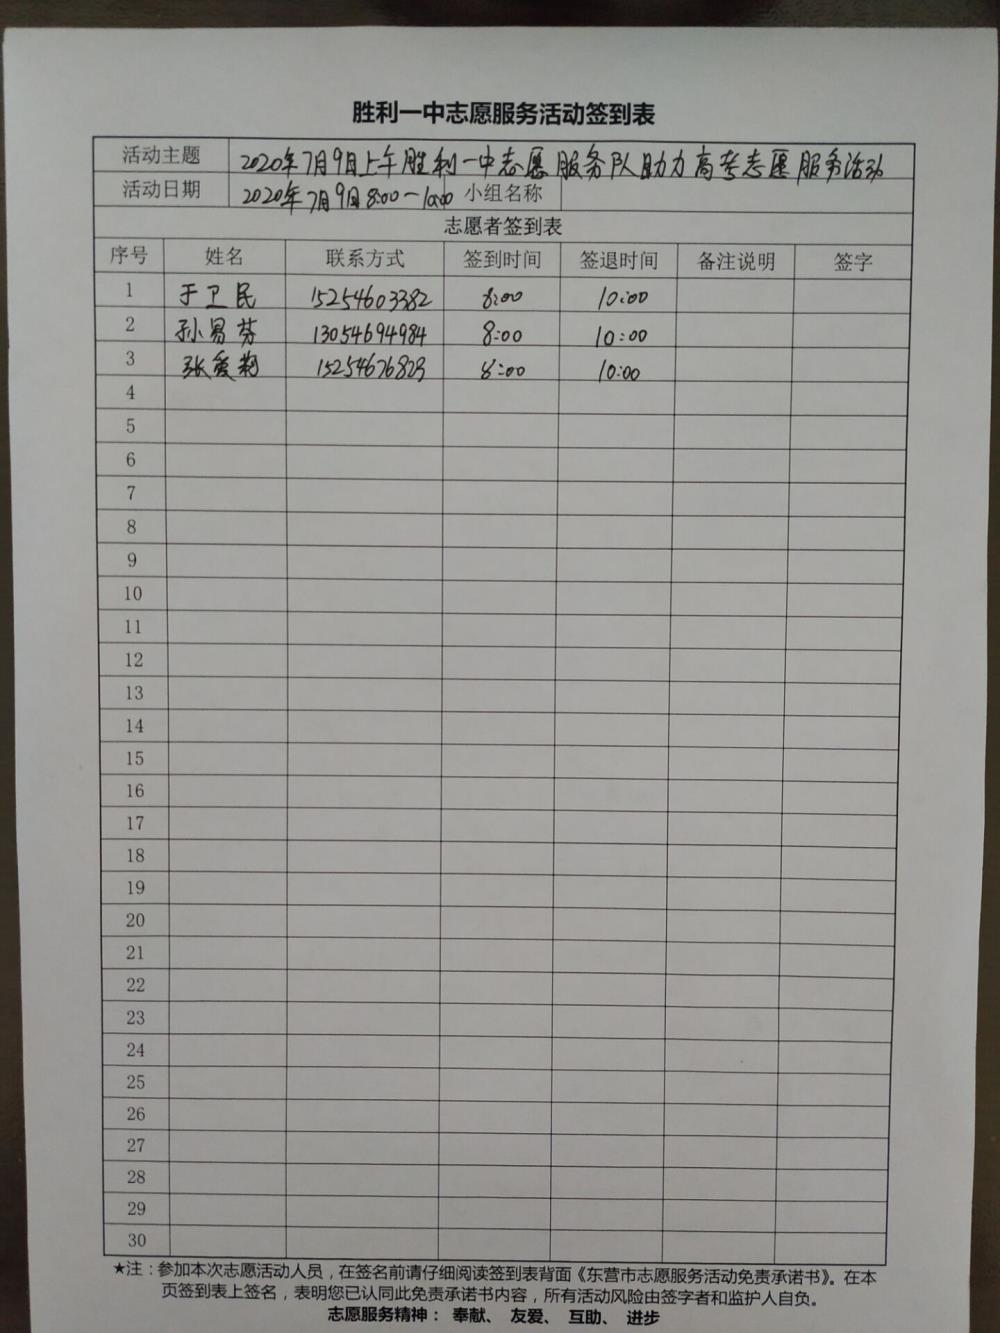 胜利一中志愿服务活动签到表
活动主题 2020年7月9日上午胜利一中志愿服务队助力高考志愿服务活动
活动日期 2020年7月9日8:00-10:00 小组名称
志愿者签到表
序号 姓名 联系方式 签到时间 签退时间 备注说明 签字
1 于卫民 15254603382 8:00 10:00
2 孙易芬 13054694984 8:00 10:00
3 张爱莉 15254676829 8:00 10:00
4
5
6
7
8
9
10
11
12
13
14
15
16
17
18
19
20
21
22
23
24
25
26
27
28
29
30
★注：参加本次志愿活动人员，在签名前请仔细阅读签到表背面《东营市志愿服务活动免责承诺书》。在本
页签到表上签名，表明您已认同此免责承诺书内容，所有活动风险由签字者和监护人自负。
志愿服务精神： 奉献、 友爱、 互助、 进步